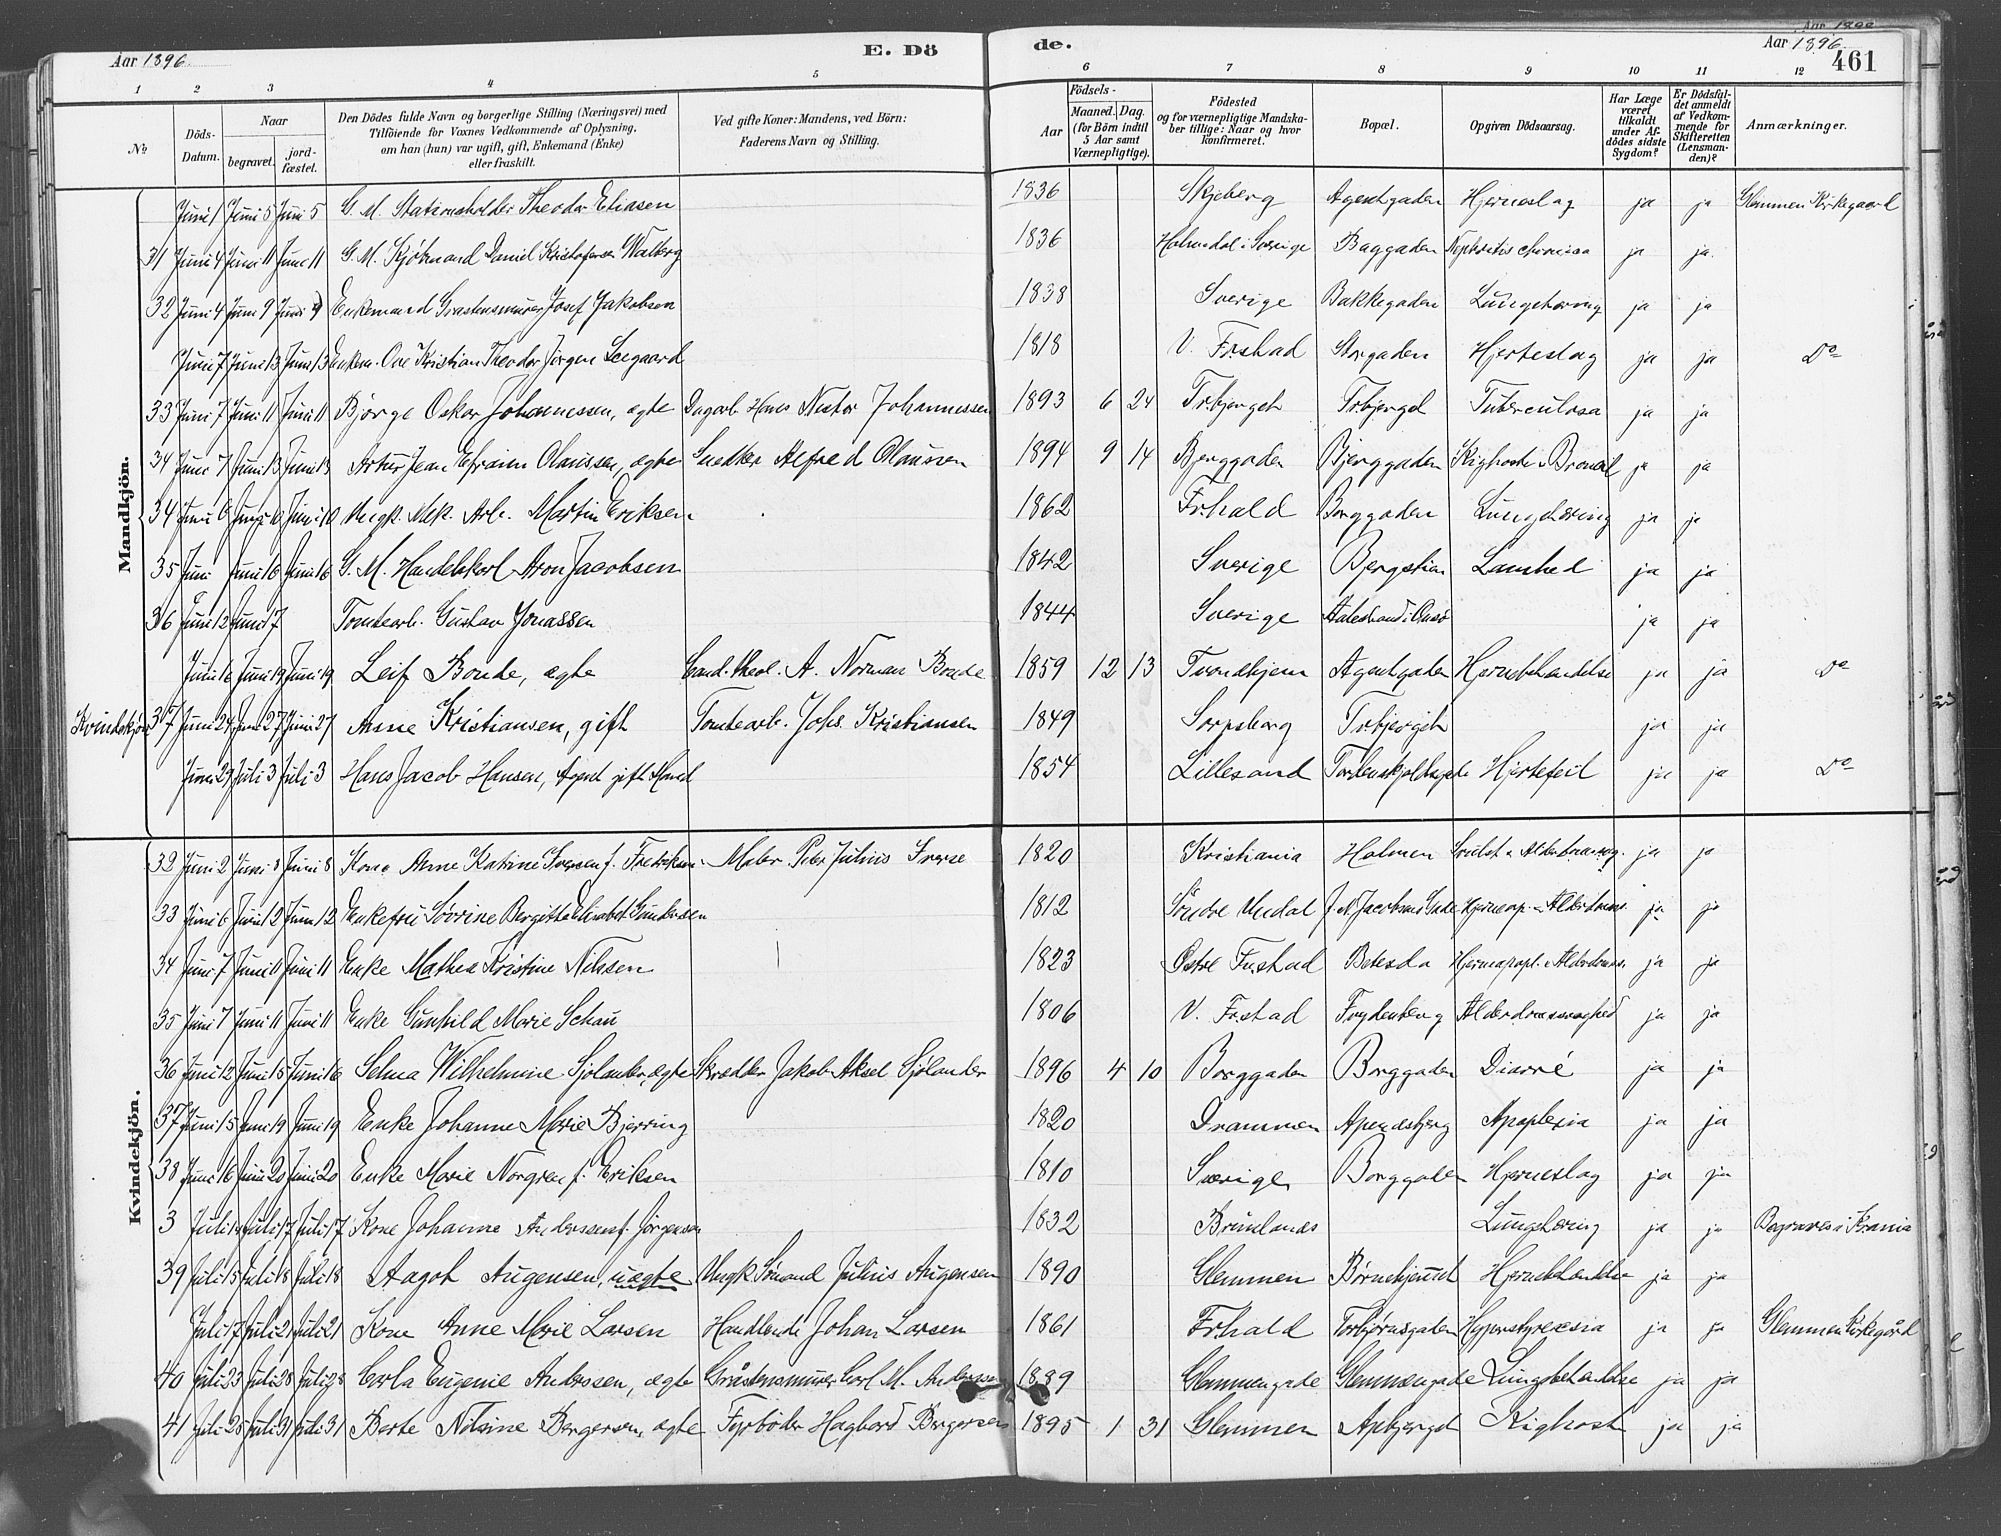 Aar 1896. E. Dö de. Aar 1896. 461
1 2 3 4 5 6 7 8 9 10 11 12
No
Döds-Datum.
Naar
begravet.
jordfæstet.
Den Dödes fulde Navn og borgerlige Stilling (Næringsvei) med
Tilföiende for Voxnes Vedkommende af Oplysning,
om han (hun) var ugift, gift, Enkemand (Enke)
eller fraskilt.
Ved gifte Koner: Mandens, ved Börn:
Faderens Navn og Stilling.
Födsels-
Aar
Maaned. Dag.
(for Börn indtil
5 Aar samt
Værnepligtige).
Födested
og for værnepligtige Mandskaber tillige: Naar og hvor
konfirmeret.
Bopæl.
Opgiven Dödsaarsag.
Har Læge
været
tilkaldt
under Afdödes sidste
Sygdom?
Er Dödsfaldet anmeldt
af Vedkommende for
Skifteretten
(Lensmanden)?
Anmærkninger.
Mandkjön.
Juni 1 Juni 5 Juni 5 G. M. Stationsholder Theodor Eliasen 1836 Skjeberg Agentgaden Hjerneslag ja ja Glemmen Kirkegaard
31 Juni 4 Juni 11 Juni 11 G. M. Sjömand Daniel Kristofersen Walberg 1836 Holmedal i Sverige Baggaden Nephritis chronica ja ja
32 Juni 4 Juni 9 Juni 9 Enkemand Graastensmurer Josef Jakobsen 1838 Sverige Bakkegaden ja ja
Juni 7 Juni 13 Juni 13 Enkem. Ove Kristian Theodor Jörgen Seegaard 1818 V. Frstad Storgaden Hjerteslag ja ja Do
33 Juni 7 Juni 11 Juni 11 Börge Oskar Johannessen, ægte Dagarb. Hans Nestor Johannessen 1893 6 24 Trbjerget Trbjerget Tuberculosa ja ja
34 Juni 7 Juni 13 Juni 13 Artur Jean Efraim Olaussen, ægte Snedker Alfred Olaussen 1894 9 14 Bjerggaden Bjerggaden Kighoste ja ja
34 Juni 6 Juni 10 Juni 10 Ungk. Mek. Arb. Martin Eriksen 1862 Frhald Borggaden Lungetæring ja ja
35 Juni Juni 16 Juni 16 G. M. Handelskarl Aron Jacobsen 1842 Sverige Bjergstien Lamhed ja ja
36 Juni 12 Juni 17 Tomtearb. Gustav Jonassen 1844 Sverige Aalestrand i Onsö ja ja
Juni 16 Juni 19 Juni 19 Leif Bonde, ægte Cand. theol. A. Norman Bonde 1859 12 13 Trondhjem Agentgaden Hjernebetændelse ja ja Do
Kvindekjön 37 Juni 24 Juni 27 Juni 27 Anne Kristiansen, gift Tomtearb. Johs. Kristiansen 1849 Sarpsborg Trbjerget ja ja
Juni 29 Juli 3 Juli 3 Hans Jacob Hansen, Agent gift Mand 1854 Lillesand Hjertefeil ja ja Do
Kvindekjön.
32 Juni 2 Juni 8 Juni 8 Kone Anne Katrine Sverse f. Fredriksen Maler Peter Julius Sverse 1820 Kristiania Holmen ja ja
33 Juni 6 Juni 12 Juni 12 Enkefru Sövrine Bergitte Elisabet Gundersen 1812 Söndre Undal ja ja
34 Juni 7 Juni 11 Juni 11 Enke Mathea Kristine Nilssen 1823 Östre Frstad Betesda ja ja
35 Juni 7 Juni 11 Juni 11 Enke Gunhild Marie Schau 1806 V. Frstad Frydenberg Alderdomssvaghed ja ja
36 Juni 12 Juni 15 Juni 16 Selma Wilhelmine Sjölander, ægte Skrædder Jakob Aksel Sjölander 1896 4 10 Borggaden Borggaden Diarré ja ja
37 Juni 15 Juni 19 Juni 19 Enke Johanne Marie Bjerring 1820 Drammen Apenesbjerg Apoplexia ja ja
38 Juni 16 Juni 20 Juni 20 Enke Marie Norgren f. Eriksen 1810 Sverige Borggaden Hjerneslag ja ja
3 Juli 14 Juli 17 Juli 17 Kone Johanne Anderssen f. Jörgensen 1832 Brunlanes Lungetæring ja ja Begraves i Krania
39 Juli 15 Juli 18 Juli 18 Aagot Augensen, uægte Ungk Sömand Julius Augensen 1890 Glemmen Börnehjemmet Hjernebetændelse ja ja
Juli 17 Juli 21 Juli 21 Kone Anne Marie Larsen Handlende Johan Larsen 1861 Frhald Torbjörnsgaden Hyperpyrexia ja ja Glemmen Kirkegård
40 Juli 23 Juli 28 Juli 28 Carla Eugenie Anderssen, ægte Gråstensmurer Carl M. Anderssen 1889 Glemmengade Glemmengade Lungebetændelse ja ja
41 Juli 25 Juli 31 Juli 31 Berte Nilsine Borgersen, ægte Fyrböder Hagbard Borgersen 1895 1 31 Glemmen Apbjerget Kighoste ja ja